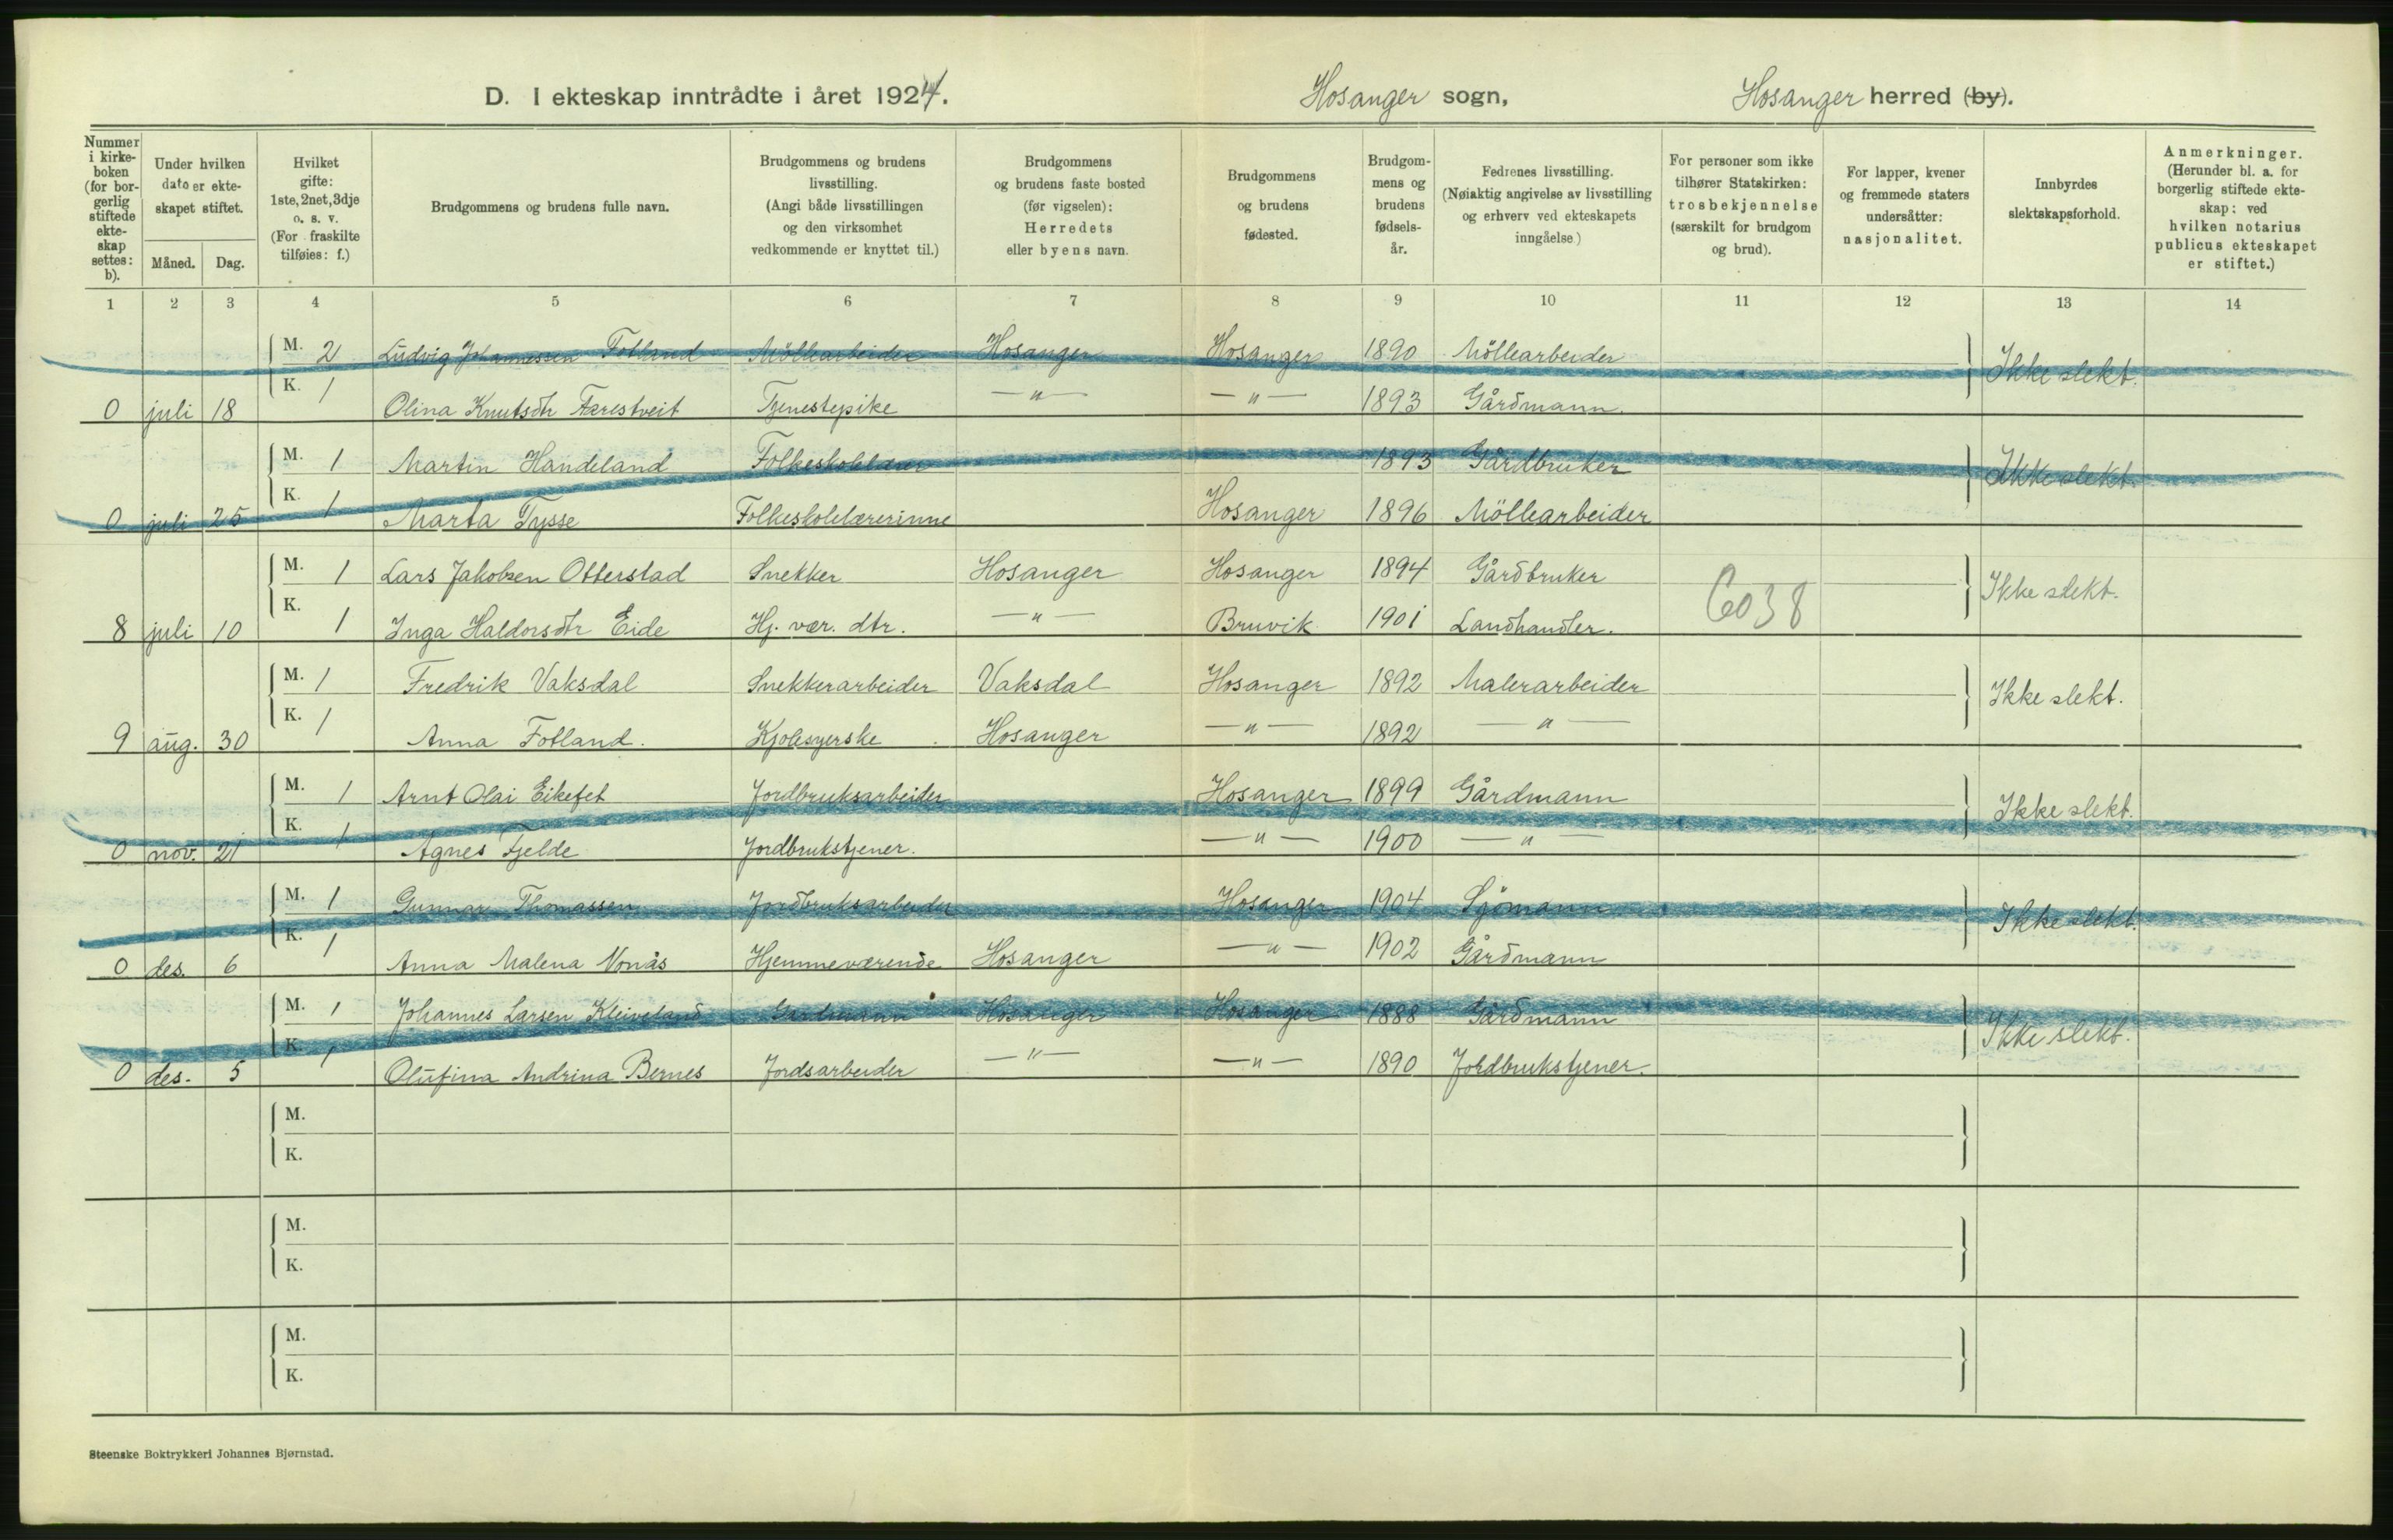 D. I ekteskap inntrådte i året 1924.
Hosanger sogn,
Hosanger herred (by).
Nummer i kirke-boken (for bor-gerlig stiftede ekte-skap settes: b).
Under hvilken dato er ekte-skapet stiftet.
Måned. Dag.
Hvilket gifte: 1ste, 2net, 3dje o. s. v. (For fraskilte tilføies: f.)
Brudgommens og brudens fulle navn.
Brudgommens og brudens livsstilling. (Angi både livsstillingen og den virksomhet vedkommende er knyttet til.)
Brudgommens og brudens faste bosted (før vigselen): Herredets eller byens navn.
Brudgommens og brudens fødested.
Brudgom-mens og brudens fødsels-år.
Fedrenes livsstilling. (Nøiaktig angivelse av livsstilling og erhverv ved ekteskapets inngåelse)
For personer som ikke tilhører Statskirken: trosbekjennelse (særskilt for brudgom og brud).
For lapper, kvener og fremmede staters undersåtter: nasjonalitet.
Innbyrdes slektskapsforhold.
Anmerkninger. (Herunder bl. a. for borgerlig stiftede ekte-skap: ved hvilken notarius publicus ekteskapet er stiftet.)
1 2 3 4 5 6 7 8 9 10 11 12 13 14
M. 2 Ludvig Johannessen Fotland Möllearbeider Hosanger Hosanger 1890 Möllearbeider Ikke slekt.
0 juli 18 K. 1 Olina Knutsdtr Færestveit Tjenestepike — " — — " — 1893 Gårdmann.
M. 1 Martin Handeland Folkeskolelærer 1893 Gårdbruker Ikke slekt.
0 juli 25 K. 1 Marta Tysse Folkeskolelærerinne Hosanger 1896 Möllearbeider
M. 1 Lars Jakobsen Otterstad Snekker Hosanger Hosanger 1894 Gårdbruker 6038 Ikke slekt.
8 juli 10 K. 1 Inga Haldorsdtr Eide Hj. vær. dtr. — " — Bruvik 1901 Landhandler.
M. 1 Fredrik Vaksdal Snekkerarbeider Vaksdal Hosanger 1892 Malerarbeider Ikke slekt.
9 aug. 30 K. 1 Anna Fotland. Kjolesyerske Hosanger — " — 1892 — " —
M. 1 Arnt Olai Eikefet Jordbruksarbeider Hosanger 1899 Gårdmann Ikke slekt.
0 nov. 21 K. 1 Agnes Fjelde Jordbrukstjener. — " — 1900 — " —
M. 1 Gunnar Thomassen Jordbruksarbeider Hosanger 1904 Sjömann Ikke slekt.
0 des. 6 K. 1 Anna Malena Vonås Hjemmeværende Hosanger — " — 1902 Gårdmann
M. 1 Johannes Larsen Kleiveland Gardmann Hosanger Hosanger 1888 Gårdmann Ikke slekt.
0 des. 5 K. 1 Olufina Andrina Bernes Jordsarbeider — " — — " — 1890 Jordbrukstjener.
M.
K.
M.
K.
M.
K.
Steenske Boktrykkeri Johannes Bjørnstad.